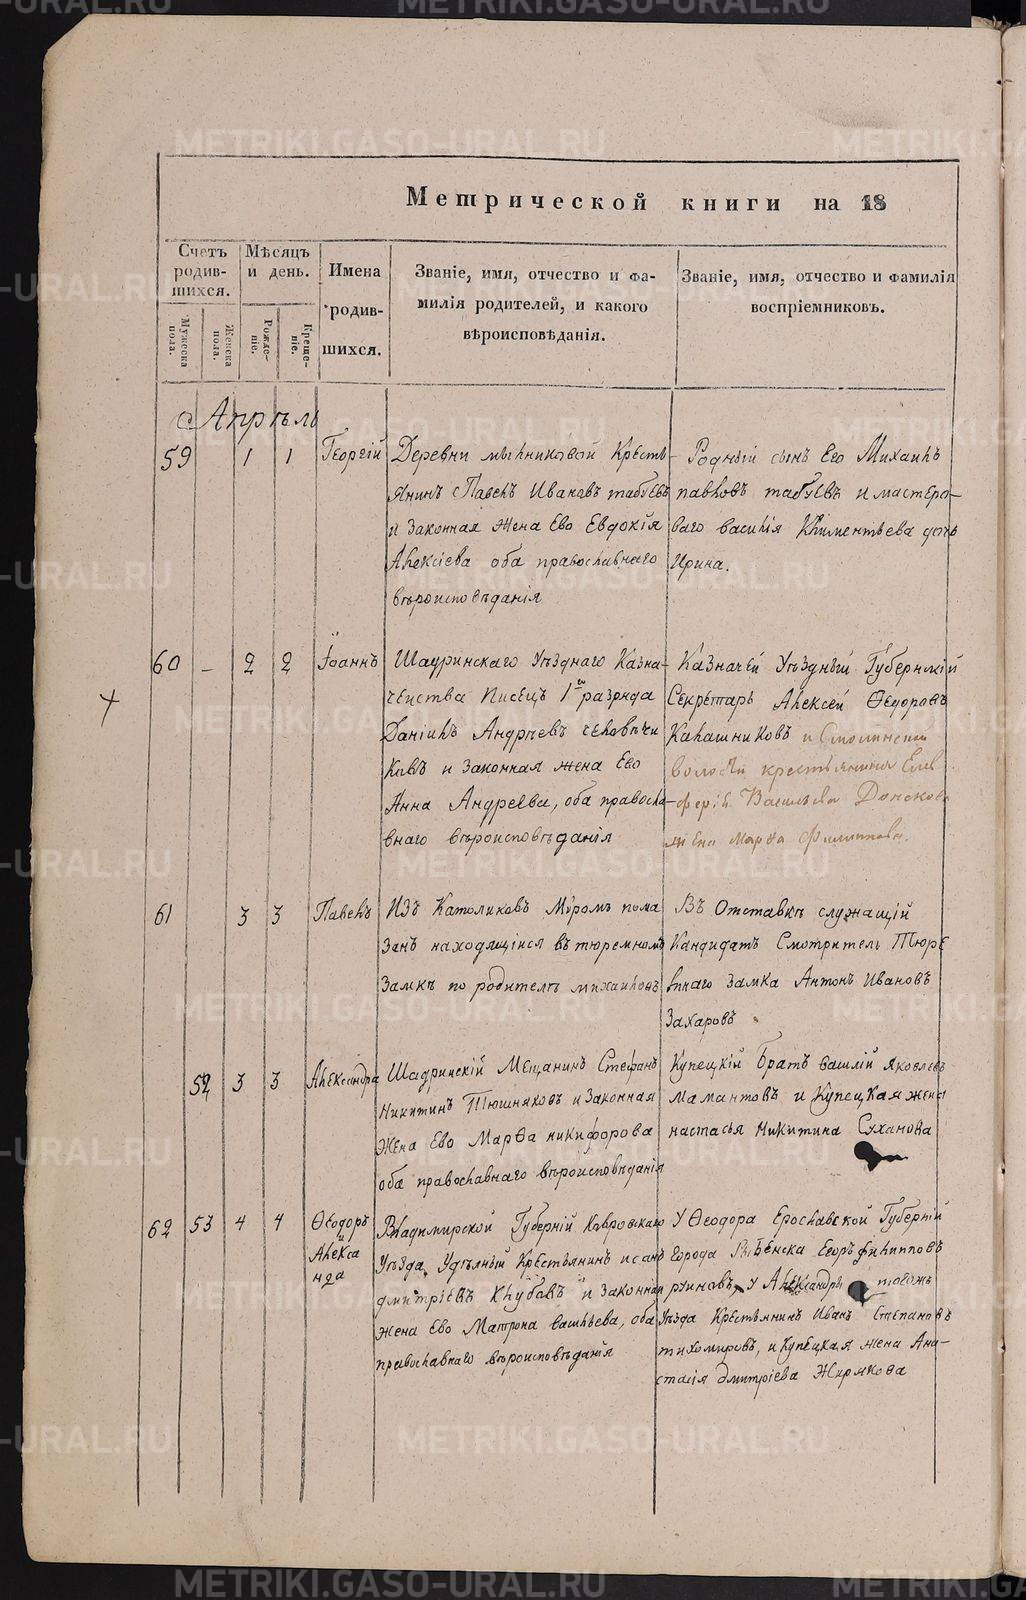 Метрической книги на 18
Счетъ родив-шихся.
Мѣсяцъ и день.
Имена родив-шихся.
Званіе, имя, отчество и фа-
милія родителей, и какого
вѣроисповѣданія.
Званіе, имя, отчество и фамилія
воспріемниковъ.
Мужеска пола.
Женска пола.
Рожде-ніе.
Креще-ніе.
Апрѣль
59 1 1 Георгій
Деревни Кресть-
янинъ Павелъ Ивановъ табуевъ
и Законная Жена Ево Евдокія
Алексіева оба православнаго
вѣроисповѣданія
Родный сынъ Ево Михаилъ
павловъ табуевъ и мастеро-
ваго василія Климентьева дочь
Ирина.
60 - 2 2 Іоаннъ
Шадринскаго Уѣзднаго Казна-
чейства Писецъ 1го разряда
Даніилъ Андреевъ человѣчи
ковъ и Законная жена Ево
Анна Андреева, оба правосла-
внаго вѣроисповѣданія
Казначей Уѣздный Губернскій
Секретарь Алексей Ѳедоровъ
Калашниковъ и Смолинской
волости крестьянина Елев
ферія Васильева Донскова
жена Марѳа Филиппова.
61 3 3 Павелъ
Изъ Католиковъ Мѵромъ пома
занъ находящійся въ тюремномъ
Замкѣ по родителѣ михаиловъ
Въ Отставкѣ служащій
Кандидатъ Смотритель Тюре
мнаго Замка Антонъ Ивановъ
Захаровъ
52 3 3 Александра
Шадринскій Мещанинъ Стефанъ
Никитинъ Тюшняковъ и Законная
Жена Ево Марѳа никифорова
оба православнаго вѣроисповѣданія
Купецкій Братъ василій Яковлевъ
Мамантовъ и Купецкая жена
настасья Никитина Суханова
62 53 4 4 Ѳеодоръ
и
Алекса
ндра
Владимирской Губерніи Ковровскаго
Уѣзда, Удѣлный Крестьянинъ
дмитріевъ Клубовъ и Законная
жена Ево Матрона васильева, оба
православнаго вѣроисповѣданія
У Ѳеодора Ерославской Губерніи
Города Егоръ филипповъ
У Александры тогожъ
Уѣзда Крестьянинъ Иванъ Степановъ
тихомировъ, и Купецкая жена Ана-
стасія дмитріева Жирякова
METRIKI.GASO-URAL.RU